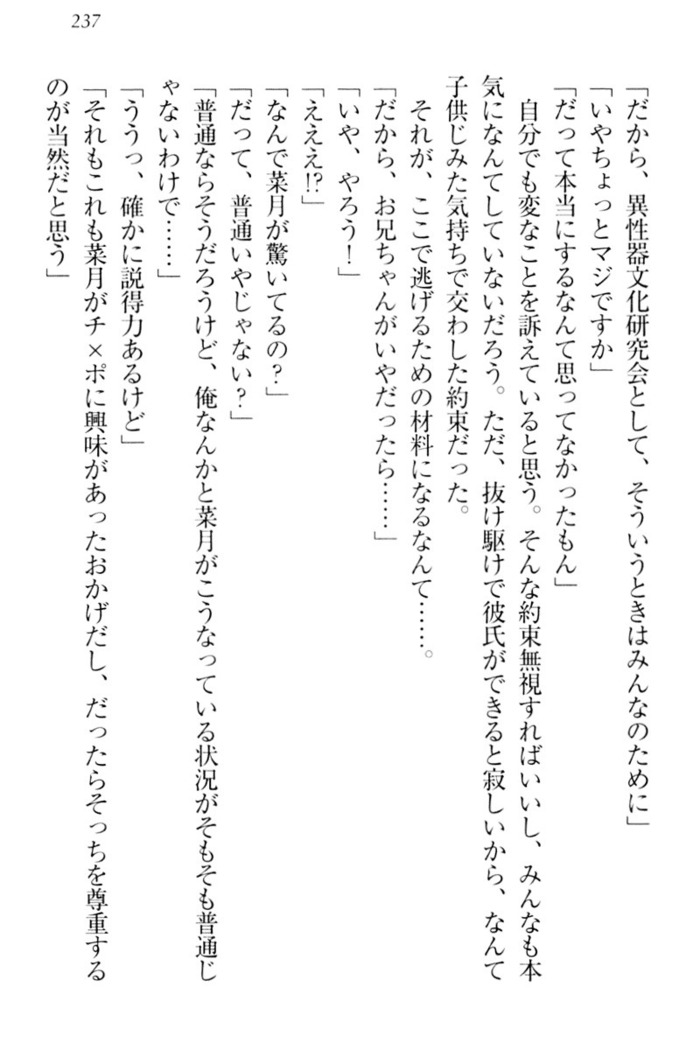 237
「だから、異性器文化研究会として、そういうときはみんなのために」
「いやちょっとマジですか」
「だって本当にするなんて思ってなかったもん」
　自分でも変なことを訴えていると思う。そんな約束無視すればいいし、みんなも本
気になんてしていないだろう。ただ、抜け駆けで彼氏ができると寂しいから、なんて
子供じみた気持ちで交わした約束だった。
　それが、ここで逃げるための材料になるなんて……。
「だから、お兄ちゃんがいやだったら……」
「いや、やろう！」
「えええ!?」
「なんで菜月が驚いてるの？」
「だって、普通いやじゃない？」
「普通ならそうだろうけど、俺なんかと菜月がこうなっている状況がそもそも普通じ
ゃないわけで……」
「ううっ、確かに説得力あるけど」
「それもこれも菜月がチ×ポに興味があったおかげだし、だったらそっちを尊重する
のが当然だと思う」